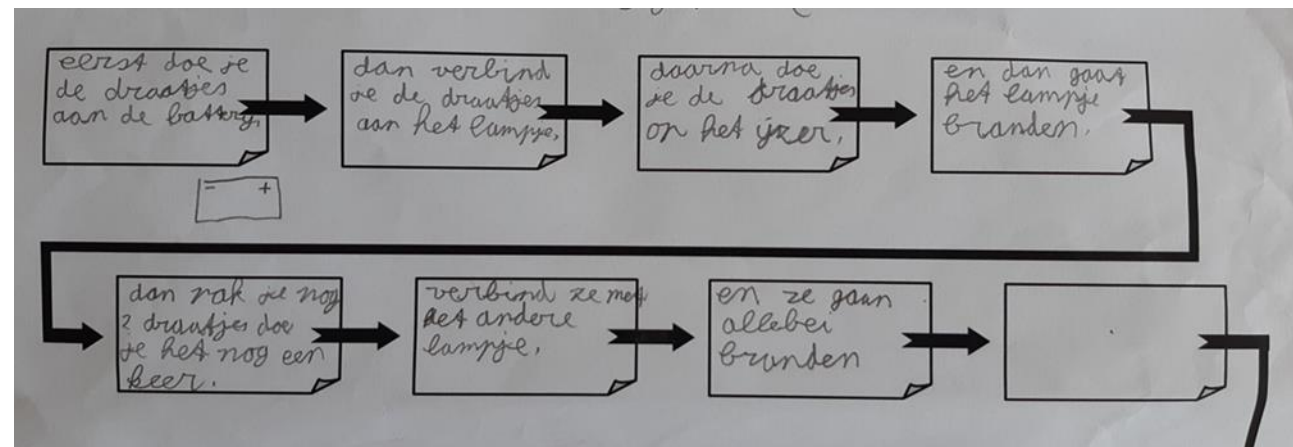 eerst doe je
de draatjes
aan de battery,
dan verbind
je de draatjes
aan het lampje,
daarna doe
je de draatjes
op het ijzer,
en dan gaat
het lampje
branden.
- +
dan pak je nog
2 draatjes doe
je het nog een
keer.
verbind ze met
het andere
lampje,
en ze gaan
allebei
branden